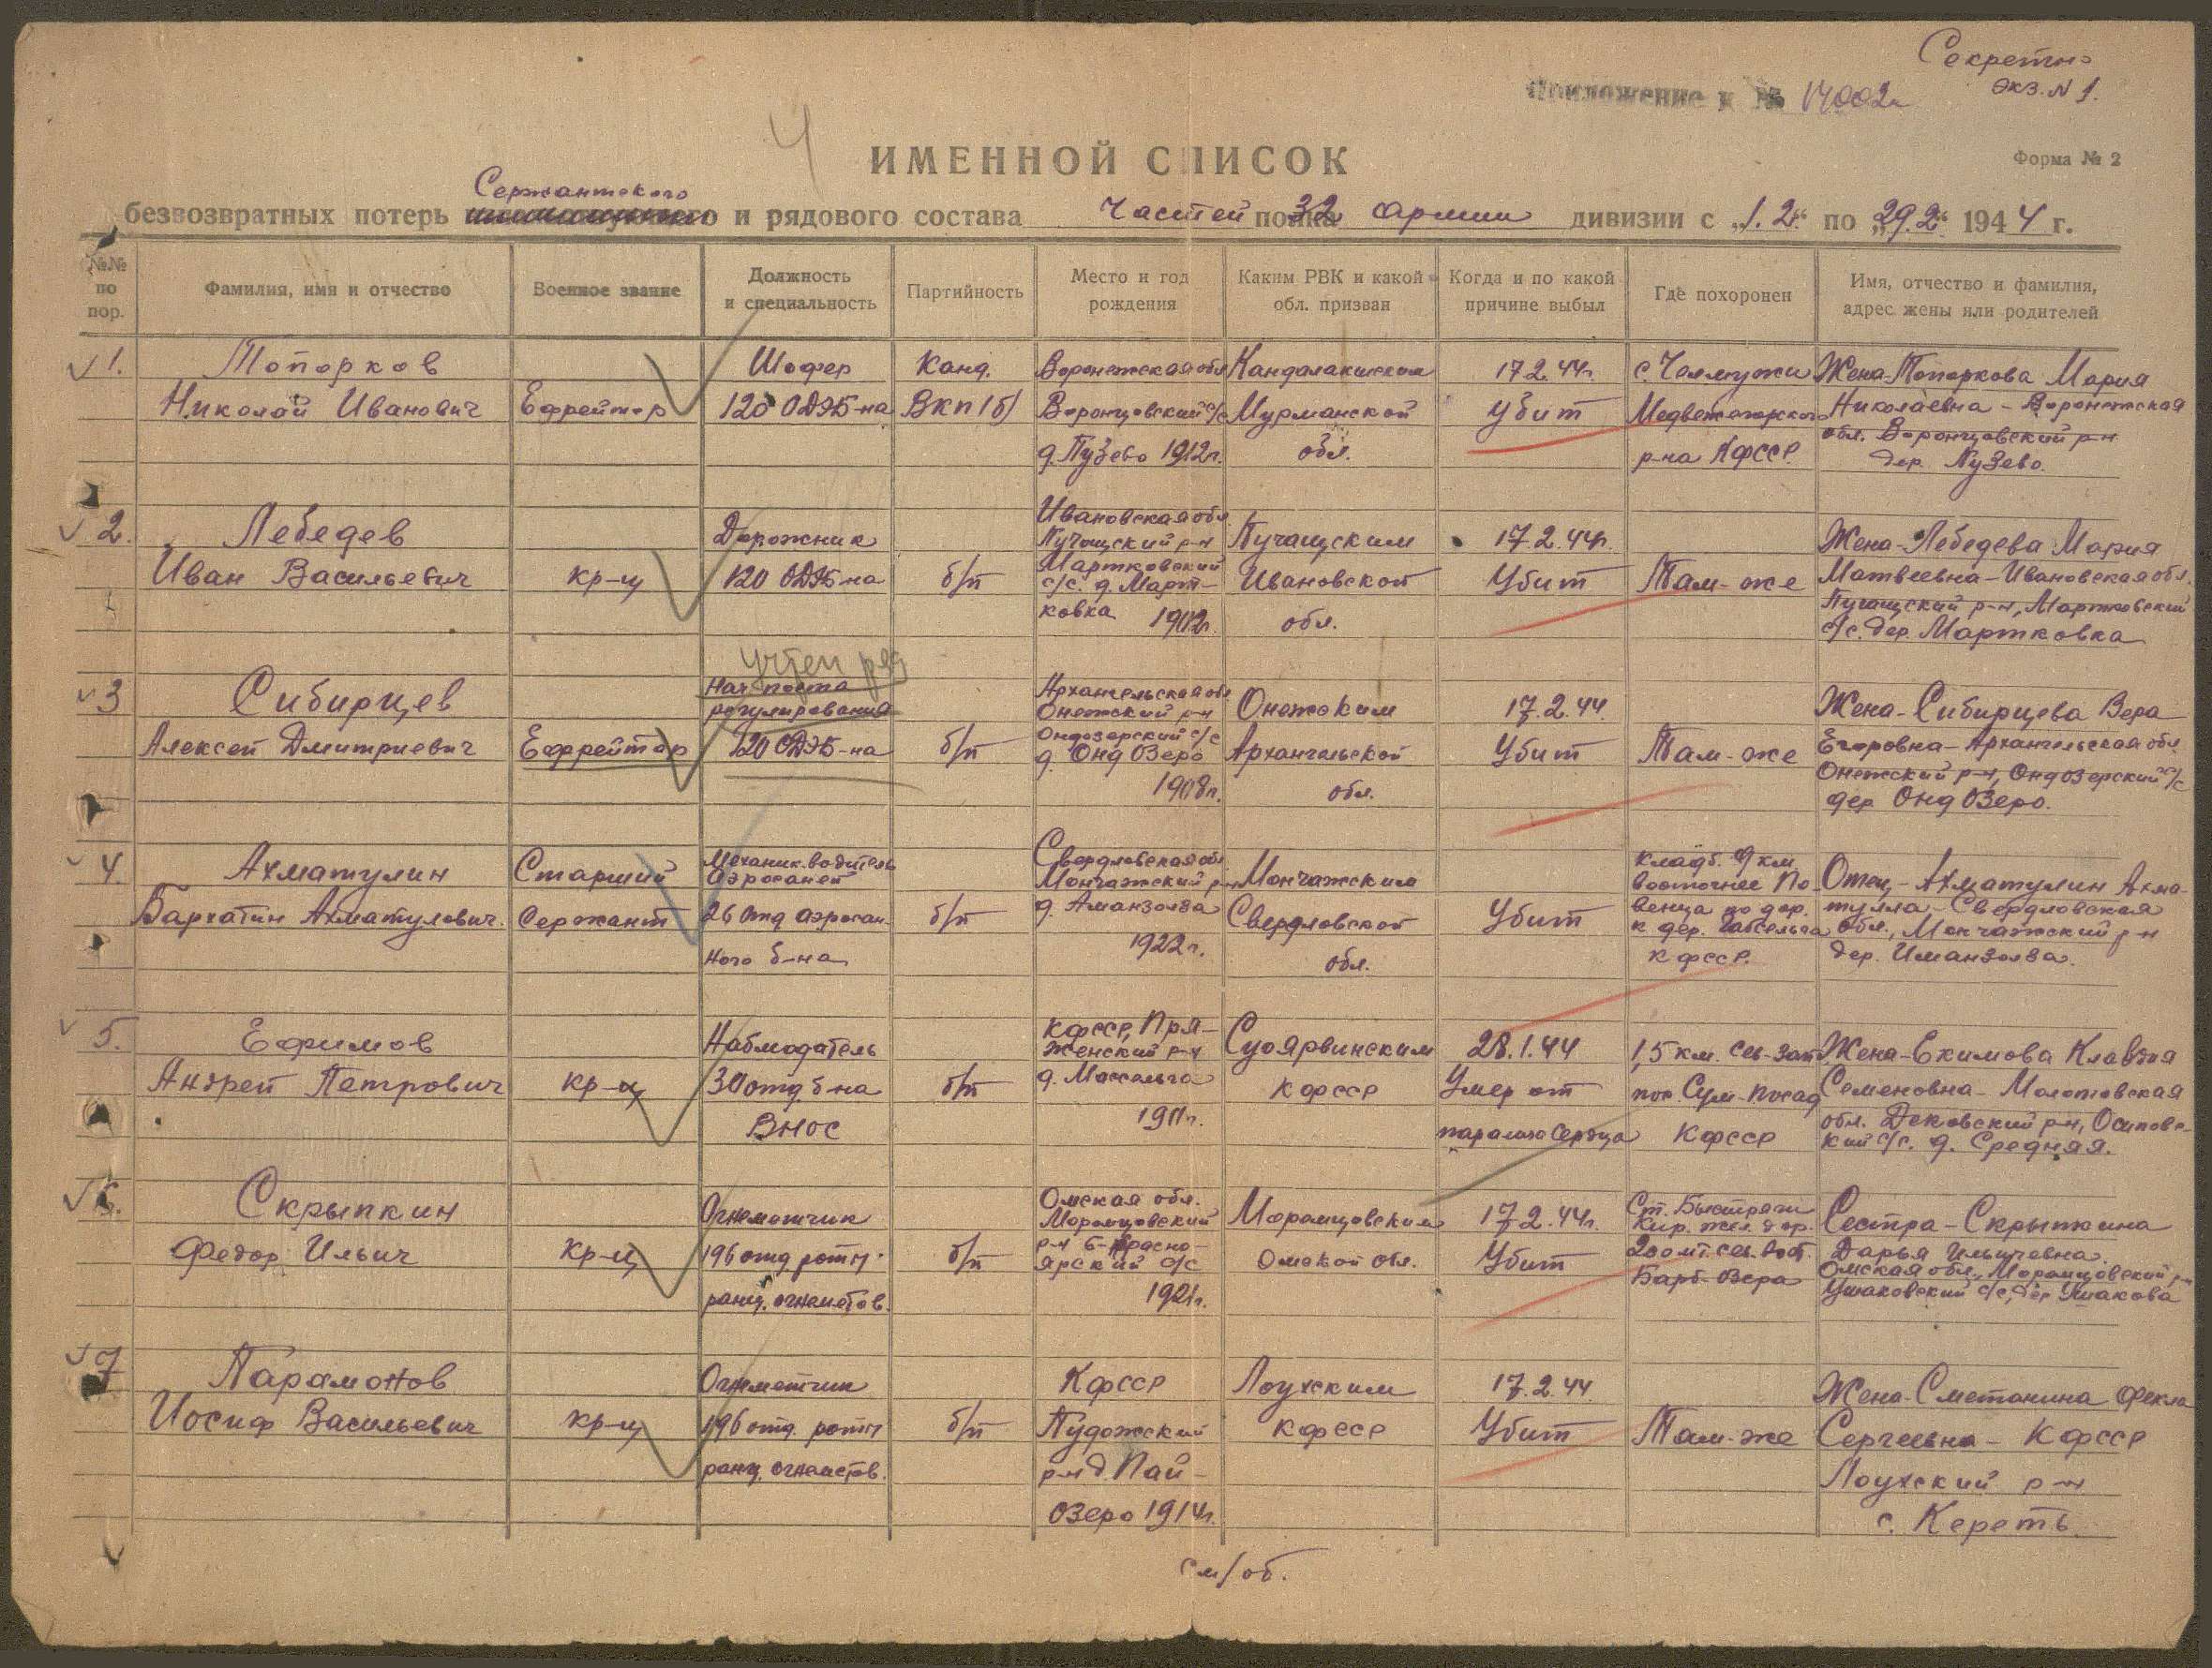 Секретно
экз. N 1.
Приложение к № 14002с
4
ИМЕННОЙ СПИСОК
Форма № 2
Сержантского
безвозвратных потерь и рядового состава Частей полка 32 армии дивизии с „1.2.“ по „29.2.“ 1944 г.
№№ по пор.
Фамилия, имя и отчество
Военное звание
Должность и специальность
Партийность
Место и год рождения
Каким РВК и какой обл. призван
Когда и по какой причине выбыл
Где похоронен
Имя, отчество и фамилия, адрес жены или родителей
1.
Топорков
Николай Иванович
Ефрейтор
Шофер
120 ОДЭБ-на
Канд.
ВКП/б/
Воронежская обл
Воронцовский с/с
д. Пузево 1912г.
Кандалакшским
Мурманской
обл.
17.2.44г.
Убит
с. Челмужи
Медвежегорского
р-на КФССР
Жена-Топоркова Мария
Николаевна - Воронежская
обл. Воронцовский р-н
дер. Пузево.
2.
Лебедев
Иван Васильевич
кр-ц
Дорожник
120 ОДЭБ-на
б/п
Ивановская обл
Пучащский р-н
Мартковский
с/с. д. Март-
ковка 1902г.
Пучащским
Ивановской
обл.
17.2.44г.
Убит
Там-же
Жена-Лебедева Мария
Матвеевна-Ивановская обл.
Пучащский р-н, Мартковский
с/с. дер. Мартковка
3
Сибирцев
Алексей Дмитриевич
Ефрейтор
учтен ряд
Нач поста
регулирования
120 ОДЭБ-на
б/п
Архангельская обл
Онежский р-н
Ондозерский с/с
д. Онд Озеро
1908г.
Онежским
Архангельской
обл.
17.2.44.
Убит
Там-же
Жена-Сибирцева Вера
Егоровна-Архангельская обл
Онежский р-н, Ондозерский с/с
дер Онд Озеро.
4.
Ахматулин
Бархатин Ахматулович.
Старший
Сержант
Механик-водитель
аэросаней
26 отд аэросан
ного б-на
б/п
Свердловская обл
Мончажский р-н
д. Аманзолва
1922г.
Мончажским
Свердловской
обл.
Убит
Кладб. 9 км
восточнее По-
венца по дор.
к дер. Габсельга
КФССР.
Отец-Ахматулин Ахма-
тулла-Свердловская
обл., Мончажский р-н
дер. Иманзолва.
5.
Ефимов
Андрей Петрович
кр-ц
Наблюдатель
30 отд б-на
ВНОС
б/п
КФССР, Пря-
женский р-н
д. Массельга
1911г.
Суоярвинским
КФССР
28.1.44
Умер от
паралича сердца
1,5 км. сев-зап
пос. Сум-Посад
КФССР
Жена-Екимова Клавдия
Семеновна-Молотовская
обл. Осиповс-
кий с/с. д. Средняя.
6.
Скрыпкин
Федор Ильич
кр-ц
Огнеметчик
196 отд. роты
ранц. огнеметов.
б/п
Омская обл.
Моромцовский
р-н б-Красно-
ярский с/с
1921г.
Моромцовским
Омской обл.
17.2.44г.
Убит
Ст. Быстряги
Кир. жел. дор.
200 мт. сев. вост.
Барб-Озера
Сестра-Скрыпкина
Дарья Ильичевна.
Омская обл., Моромцовский р-н
Ушаковский с/с, дер Ушакова
7
Парамонов
Иосиф Васильевич
кр-ц
Огнеметчик
196 отд. роты
ранц. огнеметов.
б/п
КФССР
Пудожский
р-н д. Пай-
озеро 1914г.
Лоухским
КФССР
17.2.44
Убит
Там-же
Жена-Сметанина Фекла
Сергеевна - КФССР
Лоухский р-н
с. Кереть.
см/об.